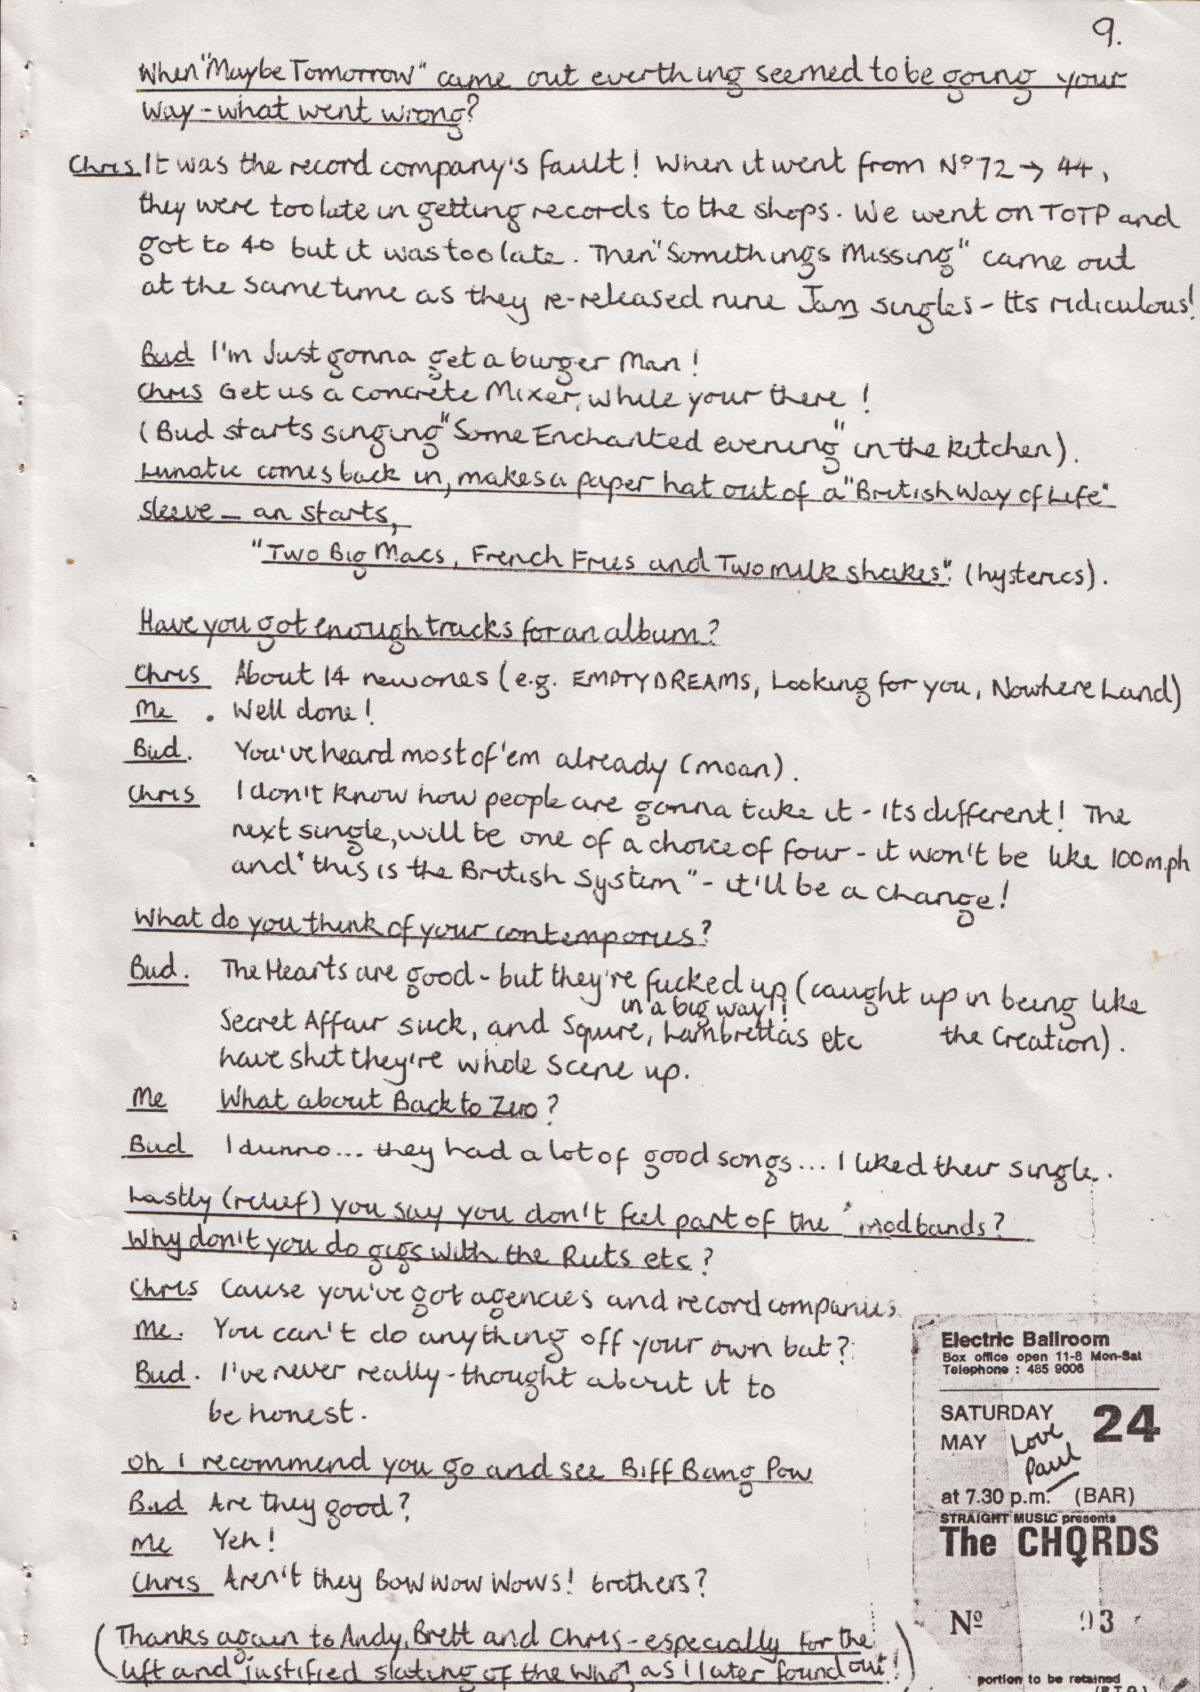 9.
When "Maybe Tomorrow" came out everthing seemed to be going your
way - what went wrong?
Chris. It was the record company's fault! When it went from Nº 72 → 44,
they were too late in getting records to the shops. We went on TOTP and
got to 40 but it was too late. Then "Somethings Missing" came out
at the same time as they re-released nine Jam singles - Its ridiculous!
Bud I'm Just gonna get a burger Man!
Chris Get us a concrete Mixer, while your there!
(Bud starts singing "Some Enchanted evening" in the kitchen).
Lunatic comes back in, makes a paper hat out of a "British Way of Life"
sleeve - an starts,
"Two Big Macs, French Fries and Two milk shakes". (hysterics).
Have you got enough tracks for an album?
Chris About 14 new ones (e.g. EMPTY DREAMS, Looking for you, Nowhere Land)
Me . Well done!
Bud. You've heard most of 'em already (moan).
Chris I don't know how people are gonna take it - Its different! The
next single, will be one of a choice of four - it won't be like 100m.ph
and "this is the British System" - it'll be a change!
What do you think of your contempories?
Bud. The Hearts are good - but they're fucked up (caught up in being like
the Creation).
Secret Affair suck, in a big way! and Squire, Lambrettas etc
have shit they're whole scene up.
Me What about Back to Zero?
Bud I dunno... they had a lot of good songs... I liked their single..
Lastly (relief) you say you don't feel part of the 'mod bands?
Why don't you do gigs with the Ruts etc?
Chris Cause you've got agencies and record companies
Me. You can't do anything off your own bat?
Bud. I've never really - thought about it to
be honest.
Oh I recommend you go and see Biff Bang Pow
Bud Are they good?
Me Yeh!
Chris Aren't they Bow Wow Wows! brothers?
(Thanks again to Andy, Brett and Chris - especially for the
and justified slating of the Who, as I later found out!)
Electric Ballroom
Box office open 11-8 Mon-Sat
Telephone : 485 9006
SATURDAY 24
MAY
Love
Paul
at 7.30 p.m. (BAR)
STRAIGHT MUSIC presents
The CHORDS
Nº 93
portion to be retained
(P.T.O.)